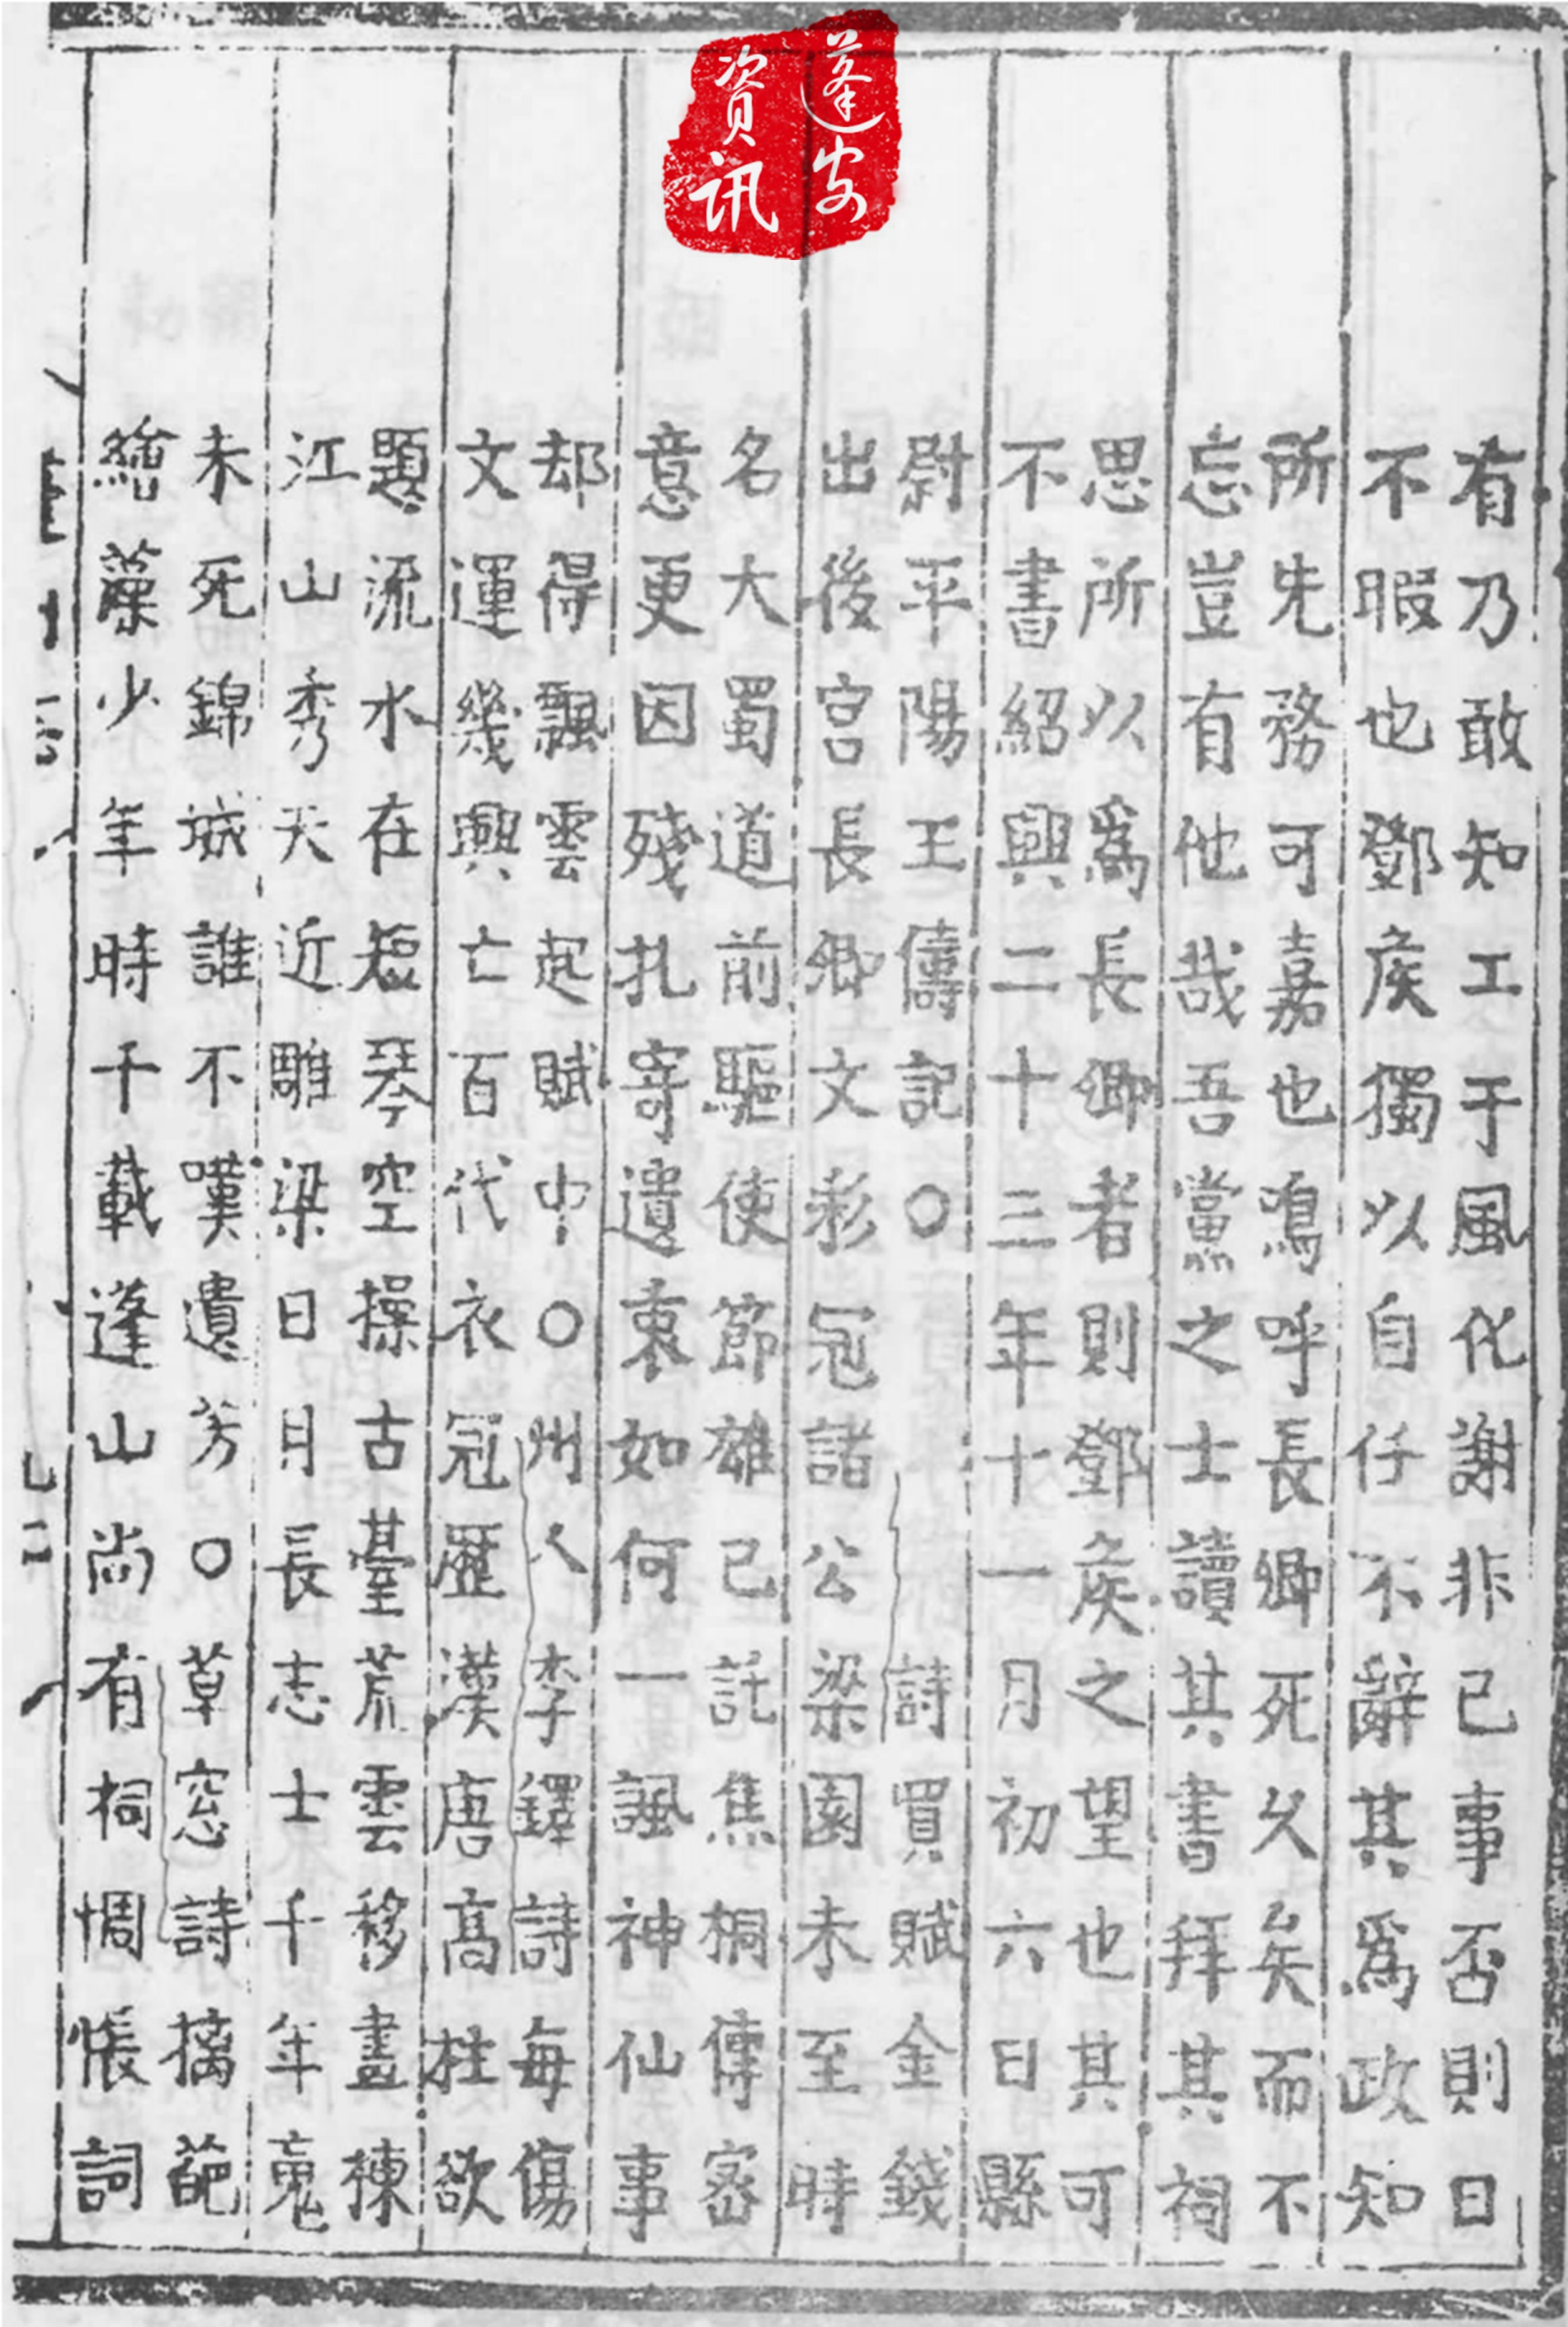 蓬安
資訊
有乃敢知工于風化謝非已事否則曰
不暇也鄧侯獨以自任不辭其爲政知
所先務可嘉也嗚呼長卿死久矣而不
忘豈有他哉吾黨之士讀其書拜其祠
思所以爲長卿者則鄧侯之望也其可
不書紹興二十三年十一月初六日縣
尉平陽王儔記〇 詩買賦金錢
出後宮長卿文彩冠諸公梁園未至時
名大蜀道前驅使節雄已託焦桐傳密
意更因殘札寄遺衷如何一諷神仙事
却得飄雲起賦中〇州人李鐸詩每傷
文運幾興亡百代衣冠歷漢唐高柱欲
題流水在短琴空操古臺荒雲移畫棟
江山秀天近雕梁日月長志士千年䰟
未死錦城誰不嘆遺芳〇草窓詩摛葩
繪藻少年時千載蓬山尚有祠惆悵詞